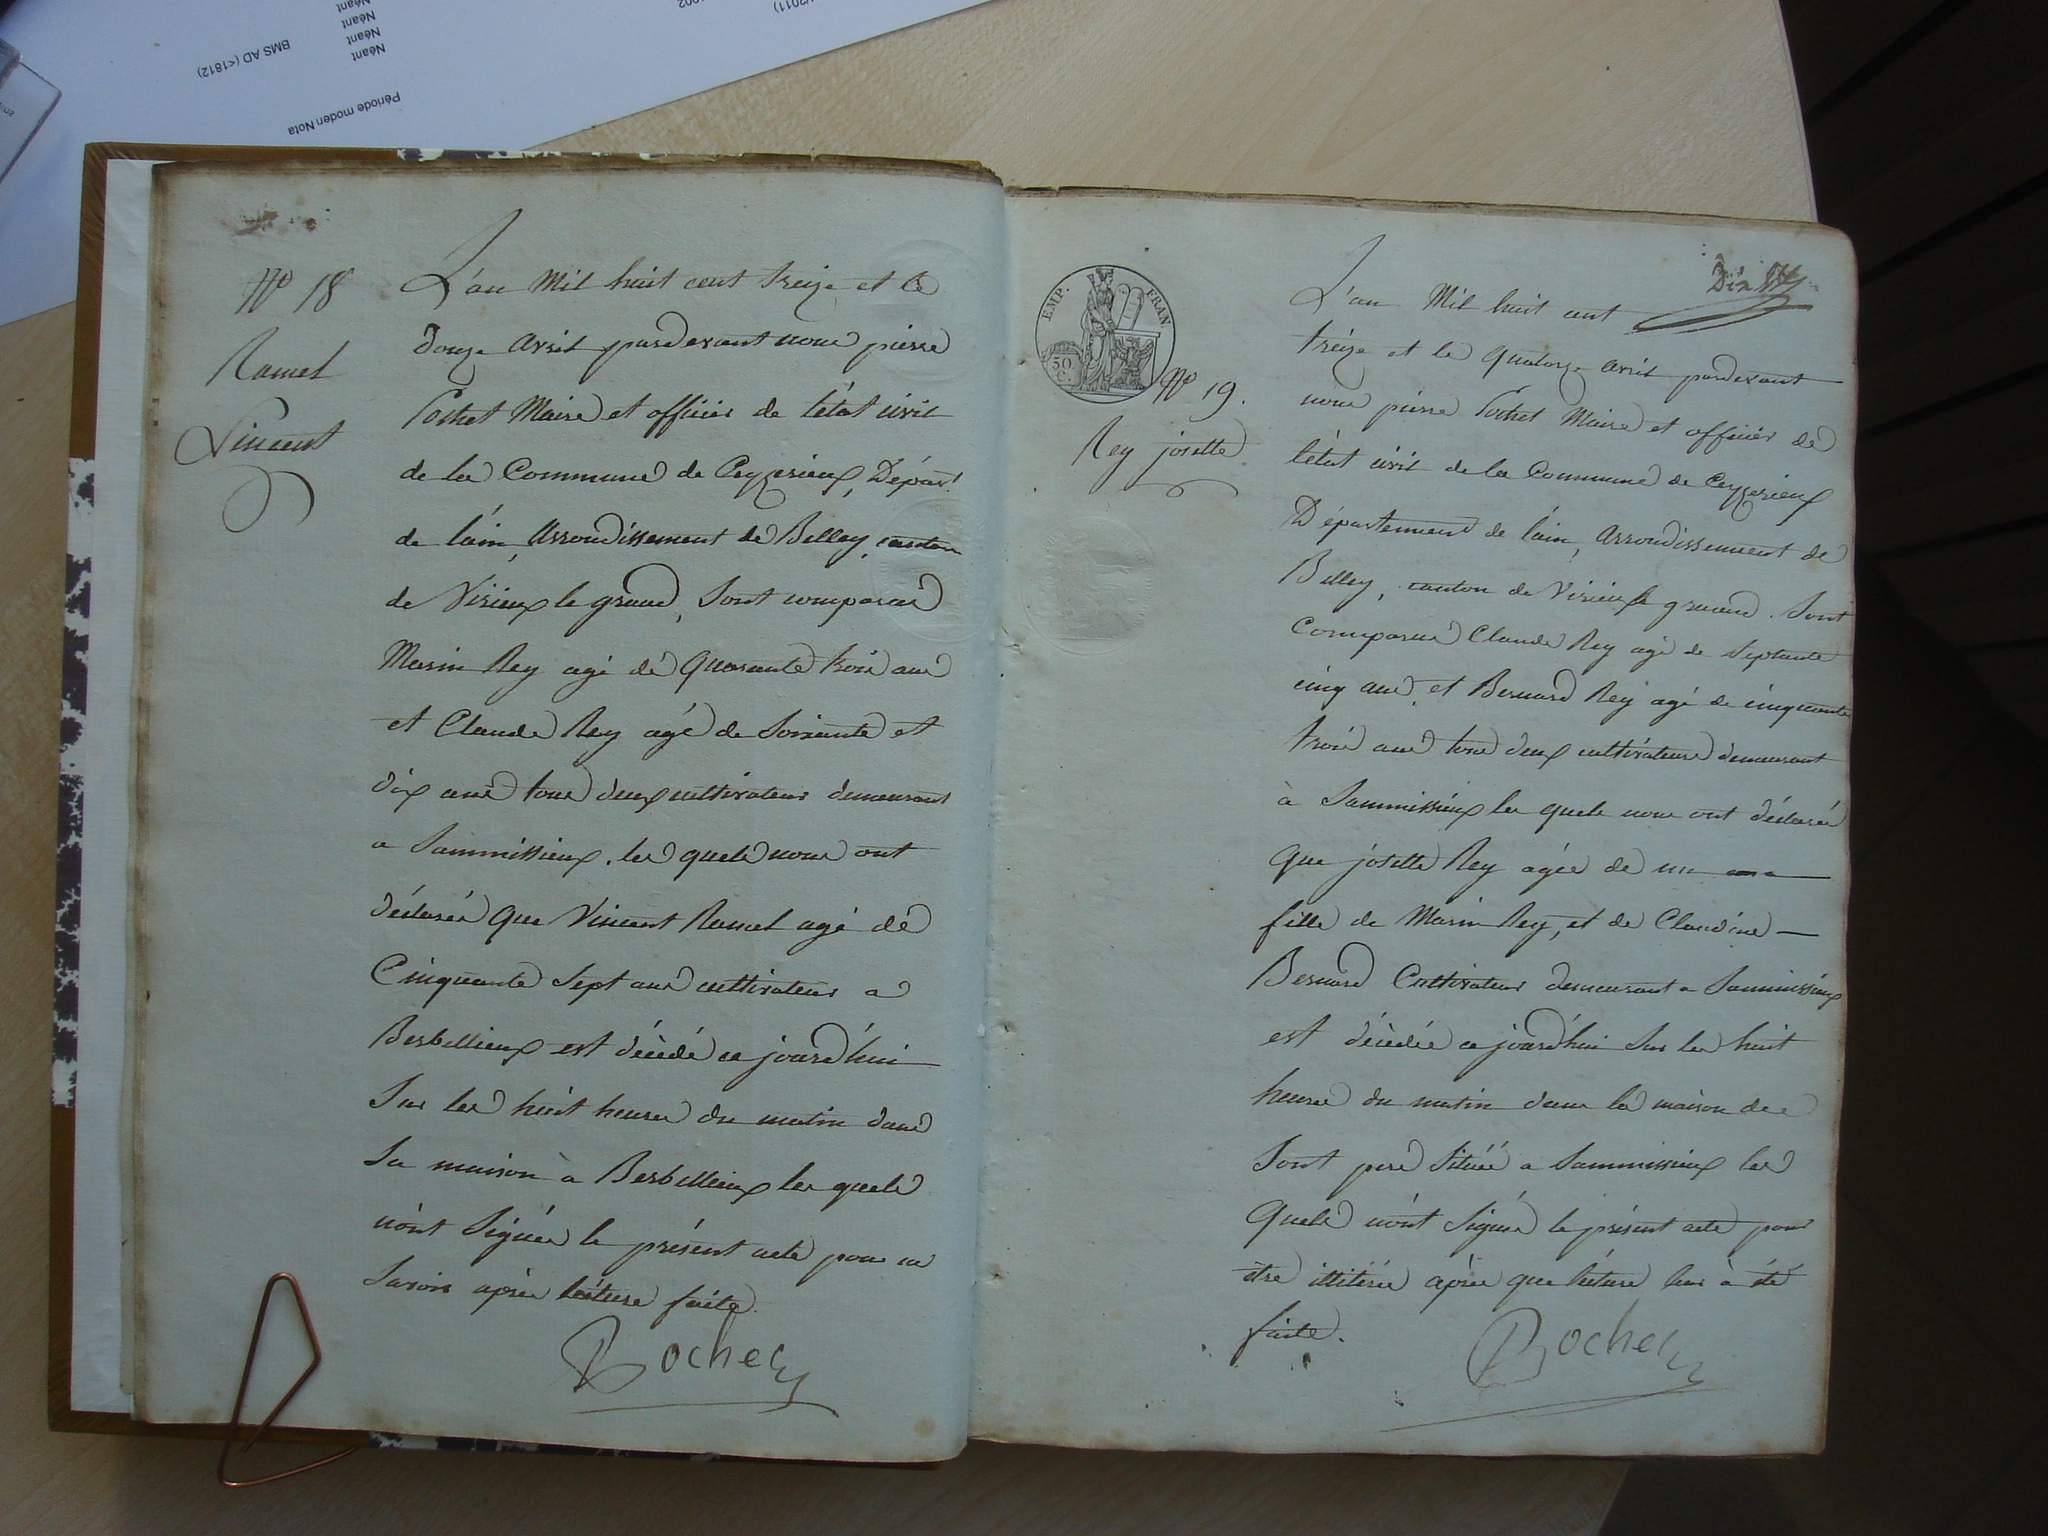 /2011)
2002
Néant
Néant
Néant
Néant
BMS AD (<1812)
Période modern Nota
N° 18
Ramel
Vincent
L'an Mil huit cent treize et le
douze avril pardevant nous pierre
Pochet Maire et officier de l'état civil
de la Commune de Ceyzerieux, Départ.t
de l'ain, Arrondissement de Belley, canton
de Virieux le grand, Sont comparus
Marin Rey agé de Quarante trois ans
et Claude Rey agé de Soixante et
dix ans tous deux cultivateur demeurant
a Sammissieux, les quels nous ont
déclarés que Vincent Ramel agé de
Cinquante Sept ans cultivateur a
Berbellieux est décédé ce jourd'hui
Sur les huit heures du matin dans
Sa maison à Berbellieux les quels
n'ont Signés le présent acte pour ne
Savoir après lécture faite.
Pochet
EMP. FRAN
50 C.
N° 19.
Rey josette
Dix
L'an Mil huit cent
treize et le quatorze avril pardevant
nous pierre Pochet Maire et officier de
l'état civil de la Commune de Ceyzerieux
Département de l'ain, Arrondissement de
Belley, canton de Virieux le grand. Sont
Comparus Claude Rey agé de Septante
cinq ans, et Bernard Rey agé de cinquante
trois ans tous deux cultivateurs demeurant
à Sammissieux les quels nous ont déclarés
que josette Rey agée de un an
fille de Marin Rey, et de Claudine
Bernard Cultivateur demeurant a Sammissieux
est décédée ce jourd'hui Sur les huit
heures du matin dans la maison de
Sont pere Située a Sammissieux les
Quels n'ont Signés le présent acte pour
être illitérés après que lécture leur à été
faite.
Pochet